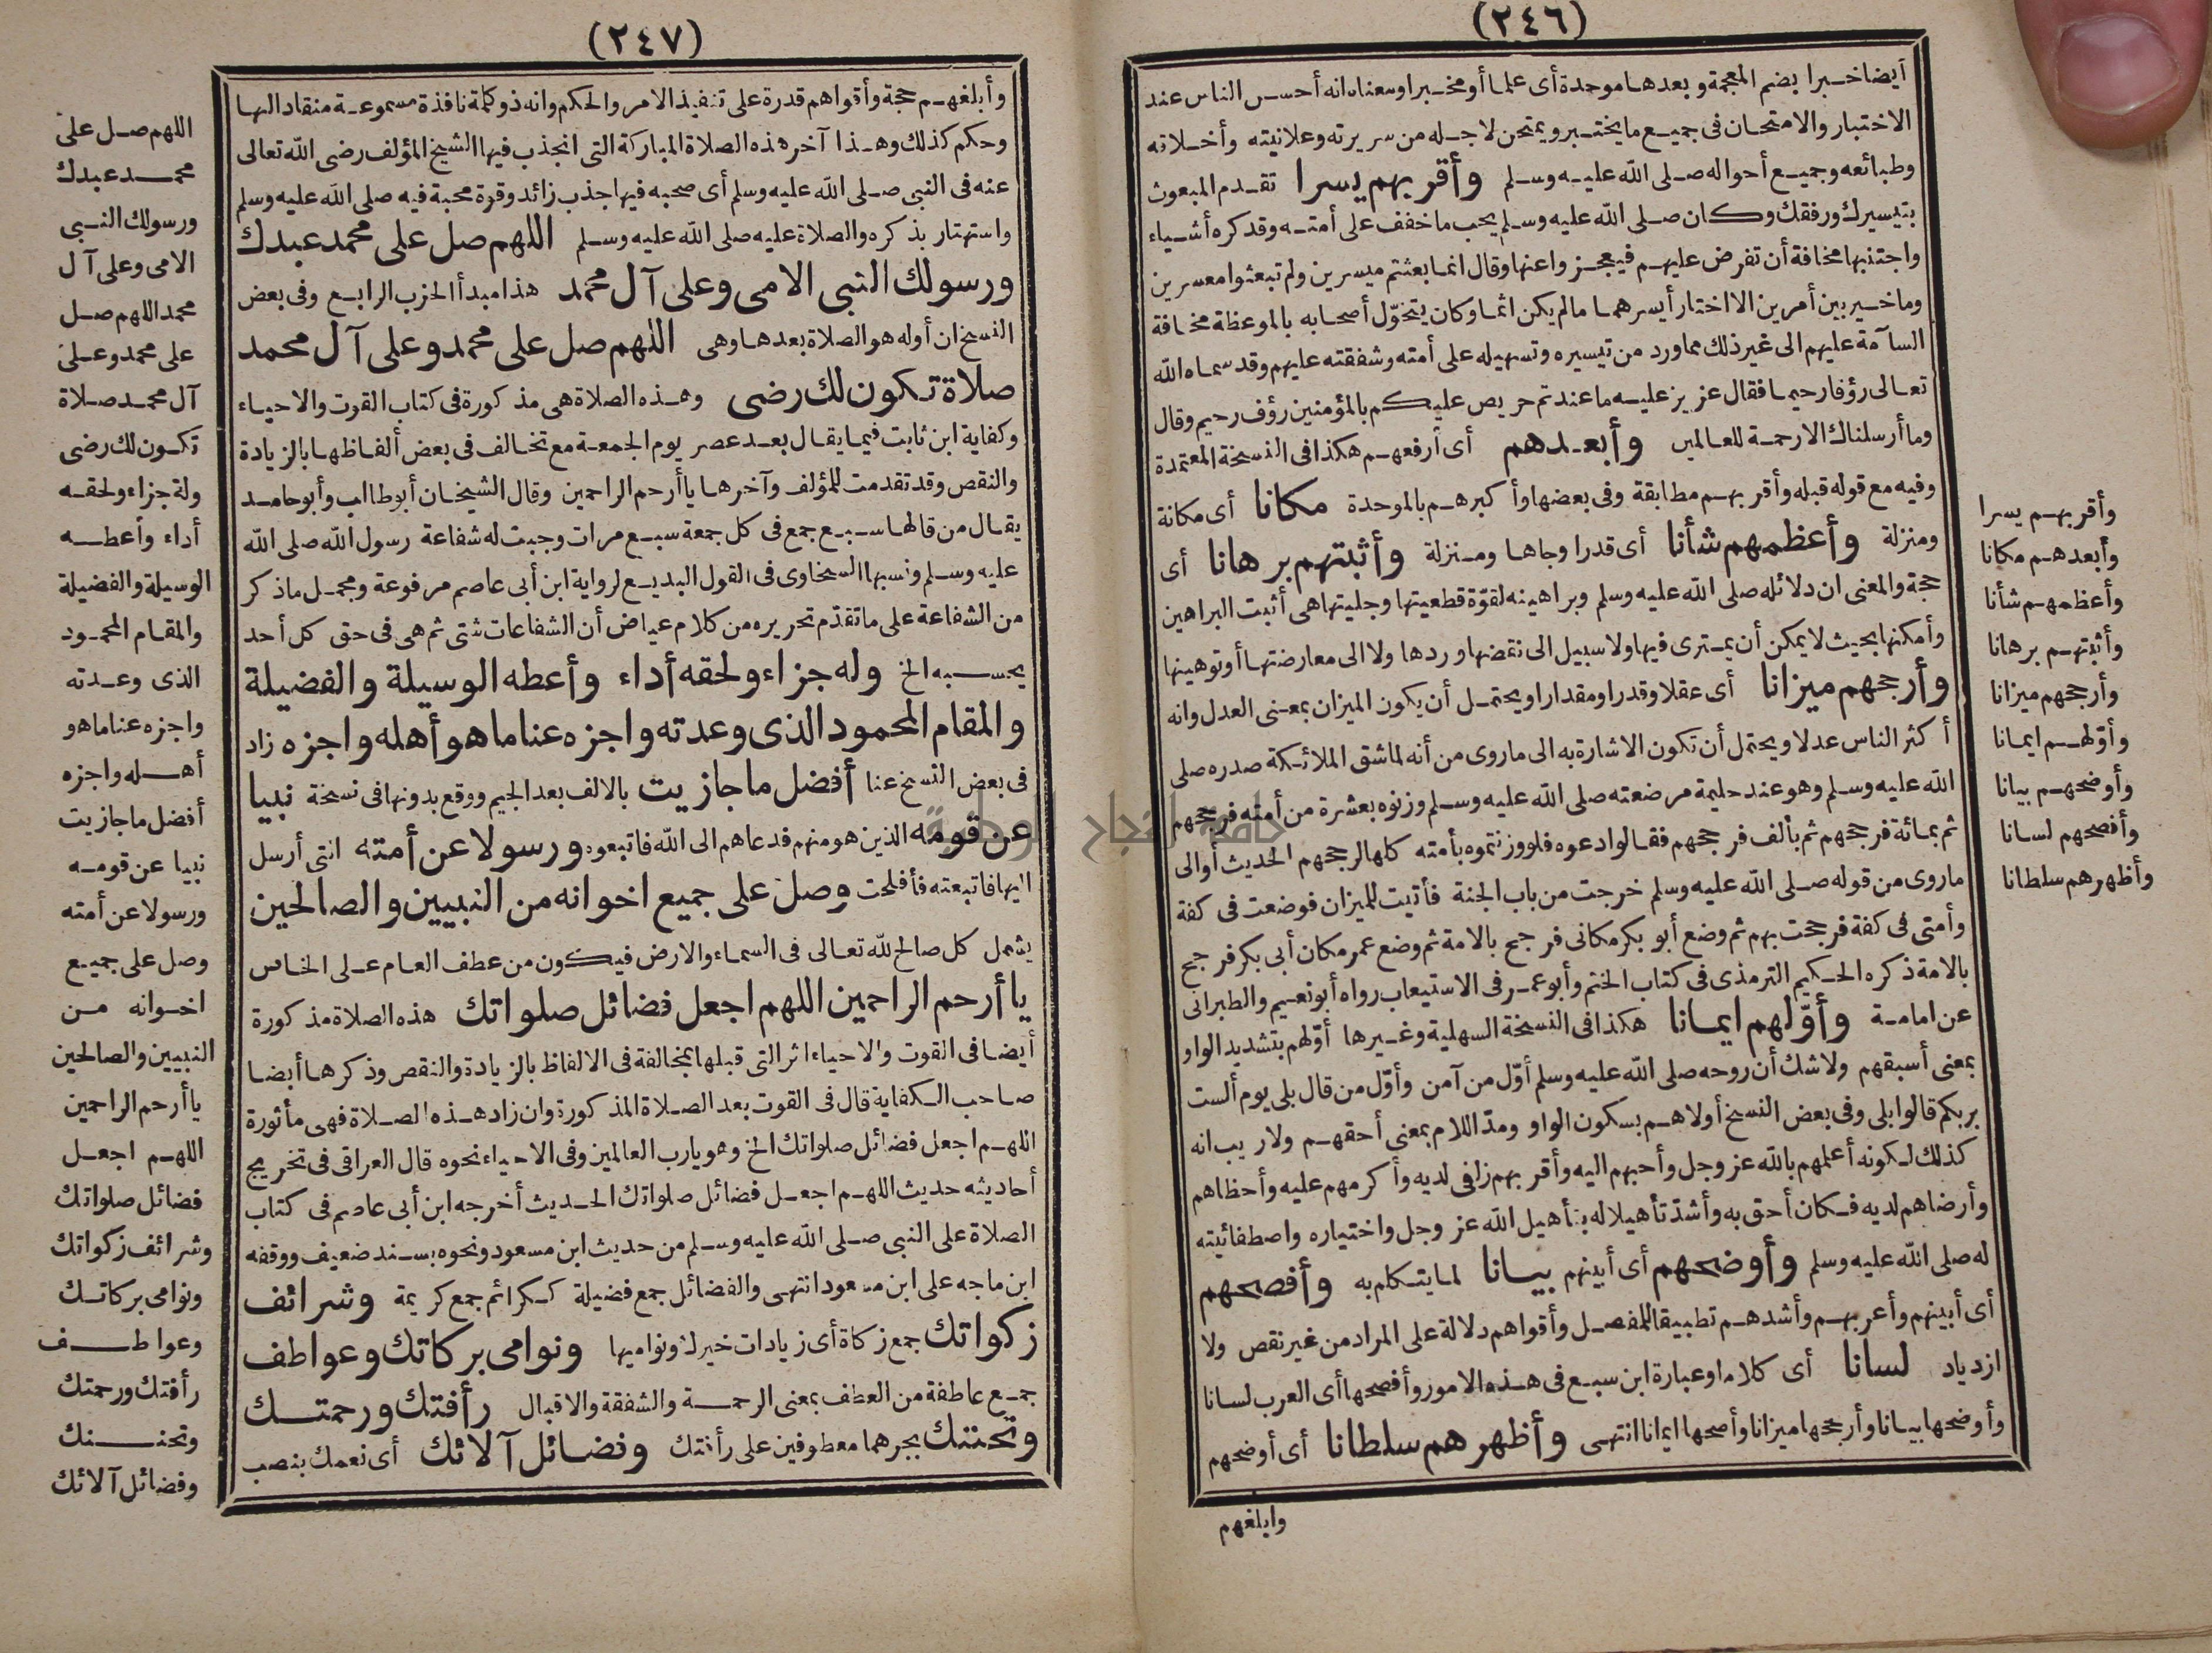 (٢٤٦)
أيضا خبرا بضم المعجمة وبعدها موحدة أى علما أو مخبرا ومعناه انه أحسن الناس عند
الاختبار والامتحان فى جميع ما يختبر ويمتحن لاجله من سريرته وعلانيته وأخلاقه
وطبائعه وجميع أحواله صلى الله عليه وسلم وأقربهم يسرا تقدم المبعوث
بتيسيرك ورفقك وكان صلى الله عليه وسلم يحب ما خفف على أمته وقد كره أشياء
واجتنبها مخافة أن تفرض عليهم فيعجزوا عنها وقال انما بعثتم ميسرين ولم تبعثوا معسرين
وما خير بين أمرين الا اختار أيسرهما ما لم يكن اثما وكان يتخوّل أصحابه بالموعظة مخافة
السآمة عليهم الى غير ذلك مما ورد من تيسيره وتسهيله على أمته وشفقته عليهم وقد سماه الله
تعالى رؤفا رحيما فقال عزيز عليه ما عنتم حريص عليكم بالمؤمنين رؤف رحيم وقال
وما أرسلناك الا رحمة للعالمين وأبعدهم أى أرفعهم هكذا فى النسخة المعتمدة
وفيه مع قوله قبله وأقربهم مطابقة وفى بعضها وأكبرهم بالموحدة مكانا أى مكانة
ومنزلة وأعظمهم شأنا أى قدرا وجاها ومنزلة وأثبتهم برهانا أى
حجة والمعنى ان دلائله صلى الله عليه وسلم وبراهينه لقوّة قطعيتها وجليتها هى أثبت البراهين
وأمكنها بحيث لا يمكن أن يمترى فيها ولا سبيل الى نقضها وردها ولا الى معارضتها أو توهينها
وأرجحهم ميزانا أى عقلا وقدرا ومقدارا ويحتمل أن يكون الميزان بمعنى العدل وانه
أكثر الناس عدلا ويحتمل أن تكون الاشارة به الى ما روى من أنه لما شق الملائكة صدره صلى
الله عليه وسلم وهو عند حليمة مرضعته صلى الله عليه وسلم وزنوه بعشرة من أمته فرجحهم
ثم بمائة فرجحهم ثم بألف فرجحهم فقالوا دعوه فلو وزنتموه بأمته كلها لرجحهم الحديث أو الى
ما روى من قوله صلى الله عليه وسلم خرجت من باب الجنة فأتيت للميزان فوضعت فى كفة
وأمتى فى كفة فرجحت بهم ثم وضع أبو بكر مكانى فرجح بالامة ثم وضع عمر مكان أبى بكر فرجح
بالامة ذكره الحكيم الترمذى فى كتاب الختم وأبو عمر فى الاستيعاب رواه أبو نعيم والطبرانى
عن امامة وأوّلهم ايمانا هكذا فى النسخة السهلية وغيرها أوّلهم بتشديد الواو
بمعنى أسبقهم ولا شك أن روحه صلى الله عليه وسلم أوّل من آمن وأوّل من قال بلى يوم ألست
بربكم قالوا بلى وفى بعض النسخ أولاهم بسكون الواو ومدّ اللام بمعنى أحقهم ولا ريب انه
كذلك لكونه أعلمهم بالله عز وجل وأحبهم اليه وأقربهم زلفى لديه وأكرمهم عليه وأحظاهم
وأرضاهم لديه فكان أحق به وأشدّ تأهيلا له بتأهيل الله عز وجل واختياره واصطفائيته
له صلى الله عليه وسلم وأوضحهم أى أبينهم بيانا لما يتكلم به وأفصحهم
أى أبينهم وأعربهم وأشدهم تطبيقا للمفصل وأقواهم دلالة على المراد من غير نقص ولا
ازدياد لسانا أى كلاما وعبارة ابن سبع فى هذه الامور وأفصحها أى العرب لسانا
وأوضحها بيانا وأرجحها ميزانا وأصحها ايمانا انتهى وأظهرهم سلطانا أى أوضحهم
وابلغهم
وأقربهم يسرا
وأبعدهم مكانا
وأعظمهم شأنا
وأثبتهم برهانا
وأرجحهم ميزانا
وأوّلهم ايمانا
وأوضحهم بيانا
وأفصحهم لسانا
وأظهرهم سلطانا
(٢٤٧)
وأبلغهم حجة وأقواهم قدرة على تنفيذ الامر والحكم وانه ذو كلمة نافذة مسموعة منقاد اليها
وحكم كذلك وهذا آخر هذه الصلاة المباركة التى انجذب فيها الشيخ المؤلف رضى الله تعالى
عنه فى النبى صلى الله عليه وسلم أى صحبه فيها جذب زائد وقوة محبة فيه صلى الله عليه وسلم
واستهتار بذكره والصلاة عليه صلى الله عليه وسلم اللهم صل على محمد عبدك
ورسولك النبى الامى وعلى آل محمد هذا مبدأ الحزب الرابع وفى بعض
النسخ ان أوله هو الصلاة بعدها وهى اللهم صل على محمد وعلى آل محمد
صلاة تكون لك رضى وهذه الصلاة هى مذكورة فى كتاب القوت والاحياء
وكفاية ابن ثابت فيما يقال بعد عصر يوم الجمعة مع تخالف فى بعض ألفاظها بالزيادة
والنقص وقد تقدمت للمؤلف وآخرها يا أرحم الراحمين وقال الشيخان أبو طالب وأبو حامد
يقال من قالها سبع جمع فى كل جمعة سبع مرات وجبت له شفاعة رسول الله صلى الله
عليه وسلم ونسبها السخاوى فى القول البديع لرواية ابن أبى عاصم مرفوعة ومجمل ما ذكر
من الشفاعة على ما تقدّم تحريره من كلام عياض أن الشفاعات شتى ثم هى فى حق كل أحد
بحسبه الخ وله جزاء ولحقه أداء وأعطه الوسيلة والفضيلة
والمقام المحمود الذى وعدته واجزه عنا ما هو أهله واجزه زاد
فى بعض النسخ عنا أفضل ما جازيت بالالف بعد الجيم ووقع بدونها فى نسخة نبيا
عن قومه الذين هو منهم فدعاهم الى الله فاتبعوه ورسولا عن أمته التى أرسل
اليها فاتبعته فأفلحت وصل على جميع اخوانه من النبيين والصالحين
يشمل كل صالح لله تعالى فى السماء والارض فيكون من عطف العام على الخاص
يا أرحم الراحمين اللهم اجعل فضائل صلواتك هذه الصلاة مذكورة
أيضا فى القوت والاحياء اثر التى قبلها بمخالفة فى الالفاظ بالزيادة والنقص وذكرها أيضا
صاحب الكفاية قال فى القوت بعد الصلاة المذكورة وان زاد هذه الصلاة فهى مأثورة
اللهم اجعل فضائل صلواتك الخ وهو يا رب العالمين وفى الاحياء نحوه قال العراقى فى تخريج
أحاديثه حديث اللهم اجعل فضائل صلواتك الحديث أخرجه ابن أبى عاصم فى كتاب
الصلاة على النبى صلى الله عليه وسلم من حديث ابن مسعود ونحوه بسند ضعيف ووقفه
ابن ماجه على ابن مسعود انتهى والفضائل جمع فضيلة ككرائم جمع كريمة وشرائف
زكواتك جمع زكاة أى زيادات خيرك ونواميها ونوامى بركاتك وعواطف
جمع عاطفة من العطف بمعنى الرحمة والشفقة والاقبال رأفتك ورحمتك
وتحننك بجرهما معطوفين على رأفتك وفضائل آلائك أى نعمك بنصب
اللهم صل على
محمد عبدك
ورسولك النبى
الامى وعلى آل
محمد اللهم صل
على محمد وعلى
آل محمد صلاة
تكون لك رضى
وله جزاء ولحقه
أداء وأعطه
الوسيلة والفضيلة
والمقام المحمود
الذى وعدته
واجزه عنا ما هو
أهله واجزه
أفضل ما جازيت
نبيا عن قومه
ورسولا عن أمته
وصل على جميع
اخوانه من
النبيين والصالحين
يا أرحم الراحمين
اللهم اجعل
فضائل صلواتك
وشرائف زكواتك
ونوامى بركاتك
وعواطف
رأفتك ورحمتك
وتحننك
وفضائل آلائك